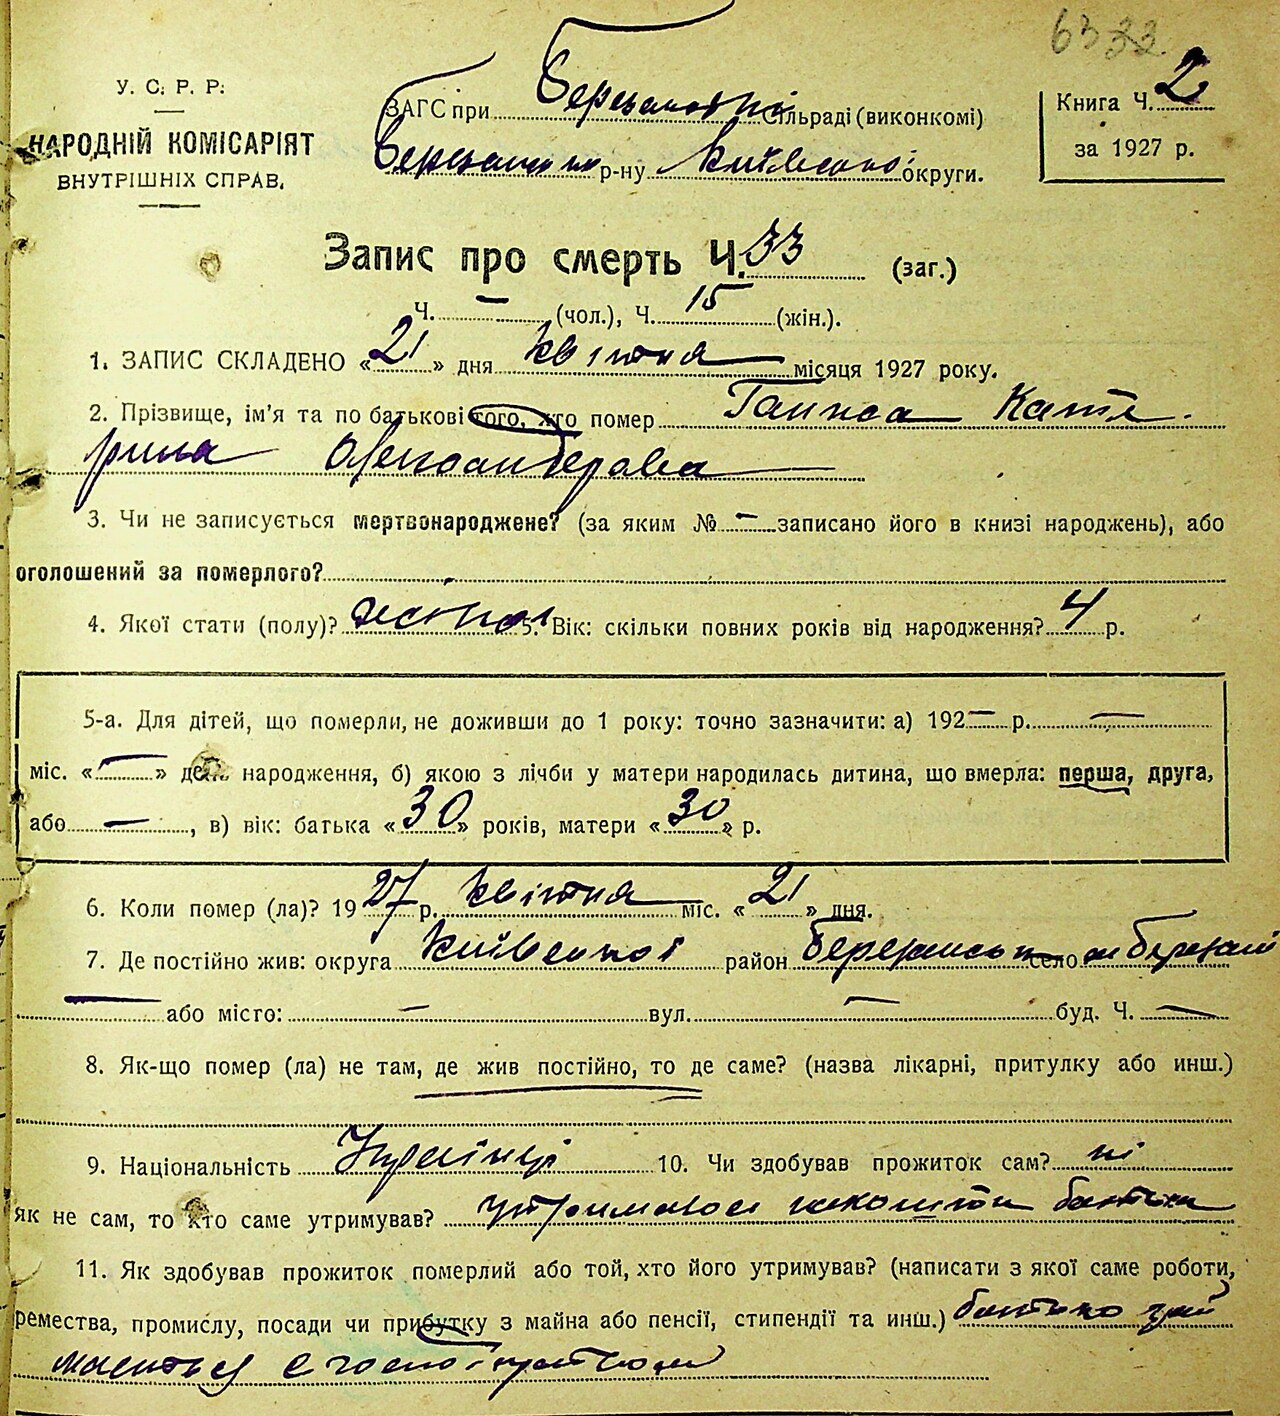 6332
У. С. Р. Р.
НАРОДНІЙ КОМІСАРІЯТ
ВНУТРІШНІХ СПРАВ.
ЗАГС при Березанській сільраді (виконкомі)
Березанськ р-ну Київської округи.
Книга Ч. 2
за 1927 р.
Запис про смерть Ч. 33 (заг.)
Ч. — (чол.), Ч. 15 (жін.).
1. ЗАПИС СКЛАДЕНО «21» дня квітня місяця 1927 року.
2. Прізвище, ім'я та по батькові того, хто помер Кате
рина Олександровна
3. Чи не записується мертвонароджене? (за яким № — записано його в книзі народжень), або
оголошений за померлого?
4. Якої стати (полу)? жіночої 5. Вік: скільки повних років від народження? 4 р.
5-а. Для дітей, що померли, не доживши до 1 року: точно зазначити: а) 192— р. —
міс. «—» день народження, б) якою з лічби у матери народилась дитина, що вмерла: перша, друга,
або —, в) вік: батька «30» років, матери «30» р.
6. Коли помер (ла)? 1927 р. квітня міс. «21» дня.
7. Де постійно жив: округа Київської район Березанськ село м Березань
— або місто: — вул. — буд. Ч. —
8. Як-що помер (ла) не там, де жив постійно, то де саме? (назва лікарні, притулку або инш.)
9. Національність Українці 10. Чи здобував прожиток сам? ні
як не сам, то хто саме утримував? на кошти батька
11. Як здобував прожиток померлий або той, хто його утримував? (написати з якої саме роботи,
ремества, промислу, посади чи прибутку з майна або пенсії, стипендії та инш.) батько зай
мається